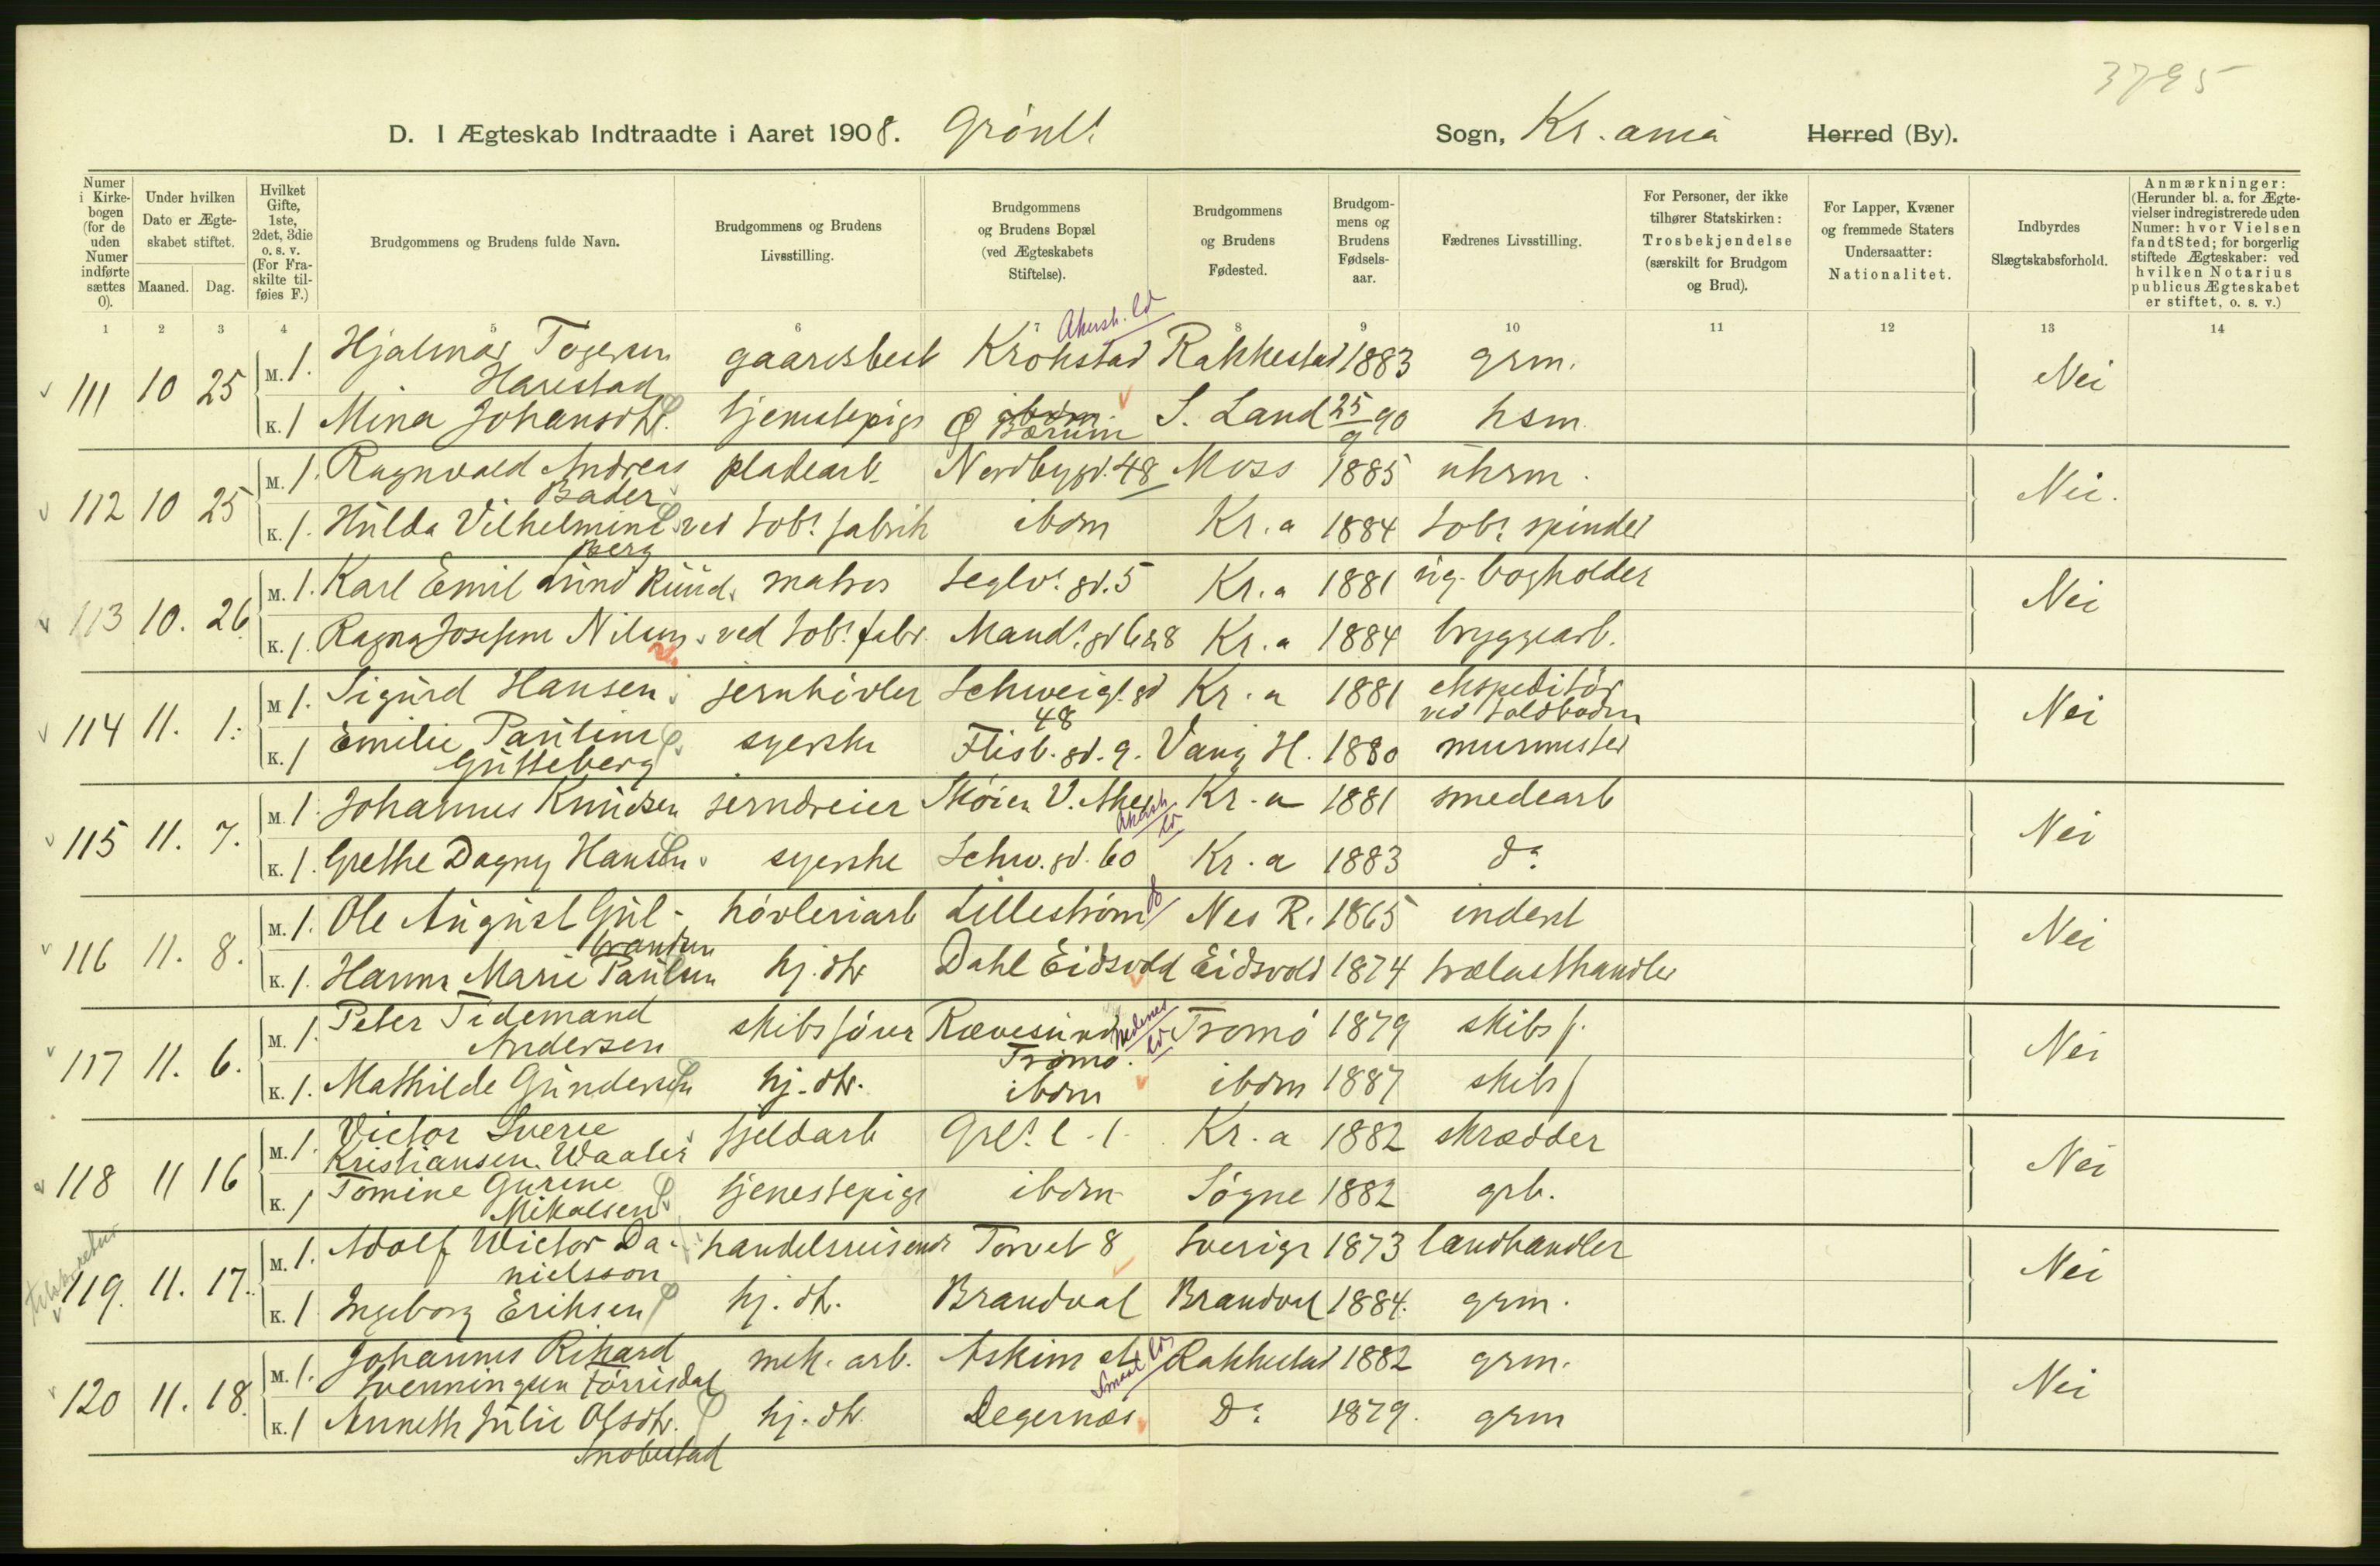 D. I Ægteskab Indtraadte i Aaret 1908. Grönl. Sogn, Kr.ania Herred (By).
Numer i Kirkebogen (for de uden Numer indførte sættes 0).
Under hvilken Dato er Ægteskabet stiftet.
Maaned. Dag.
Hvilket Gifte, 1ste, 2det, 3die o. s. v. (For Fraskilte tilføies F.)
Brudgommens og Brudens fulde Navn.
Brudgommens og Brudens Livsstilling.
Brudgommens og Brudens Bopæl (ved Ægteskabets Stiftelse).
Brudgommens og Brudens Fødested.
Brudgommens og Brudens Fødselsaar.
Fædrenes Livsstilling.
For Personer, der ikke tilhører Statskirken: Trosbekjendelse (særskilt for Brudgom og Brud).
For Lapper, Kvæner og fremmede Staters Undersaatter: Nationalitet.
Indbyrdes Slægtskabsforhold.
Anmærkninger: (Herunder bl. a. for Ægtevielser indregistrerede uden Numer: hvor Vielsen fandt Sted; for borgerlig stiftede Ægteskaber: ved hvilken Notarius publicus Ægteskabet er stiftet, o. s. v.)
1 2 3 4 5 6 7 8 9 10 11 12 13 14
111 10 25 M. 1. Hjalmar Harestad Krokstad Akersh. Rakkestad 1883 grm. Nei
K. 1 Mina Johansdtr. tjenestepige Bærum S. Land 25/9 90 hsm.
112 10 25 M. 1. Ragnvald Andreas Bader pladearb. Nordbygd. 48 Moss 1885 uhrm. Nei.
K. 1. Hulda Vilhelmine Berg ved tob. fabrik ibdm Kr.a 1884 tob. spinder
113 10. 26 M. 1. Karl Emil Lund Ruud matros Teglv. gd. 5 Kr.a 1881 bogholder Nei
K. 1. Ragna Josefine Nilsen ved tob. fabr. Mand. gd 6 a 8 Kr.a 1884 bryggearb.
114 11. 1. M 1. Sigurd Hansen jernhövler Schweig. gd 48 Kr.a 1881 ekspeditör ved toldboden Nei
K. 1 Emilie Pauline Gulleberg syerske Flisb. gd. 9. Vang H. 1880 murmester
115 11. 7. M. 1. Johannes Knudsen jerndreier Møien V. Aker Akersh. Kr.a 1881 smedearb Nei
K. 1. Grethe Dagny Hansen syerske Schw. gd. 60 Kr.a 1883 do
116 11. 8. M. 1. Ole August Gulbrandsen hövleriarb Lilleström Nes R. 1865 inderst Nei
K. 1. Hanna Marie Paulsen hj. dtr Dahl Eidsvold Eidsvold 1874 trælasthandler
117 11. 6. M. 1. Peter Tidemand Andersen skibsförer Rævesund Tromö. Nedenes Tromö 1879 skibsf. Nei
K. 1. Mathilde Gundersen hj. dtr. ibdm ibdm 1887 skibsf
118 11 16 M. 1. Victor Sverre Kristiansen Waaler fjeldarb Grl. l. 1. Kr.a 1882 skrædder Nei
K. 1 Tomine Gurine Mikalsen tjenestepige ibdm Sögne 1882 grb.
119. 11. 17. M. 1. Adolf Wictor Danielsson handelsreisende Torvet 8 Sverige 1873 landhandler Nei
K. 1 Ingeborg Eriksen hj. dtr. Brandval Brandval 1884. grm.
120 11. 18. M. 1. Johannes Rikard Svenningsen mek. arb. Askim st Smaal. Rakkestad 1882 grm. Nei
K. 1 Anneth Julie Olsdtr. hj. dtr. Degernæs Do 1879. grm